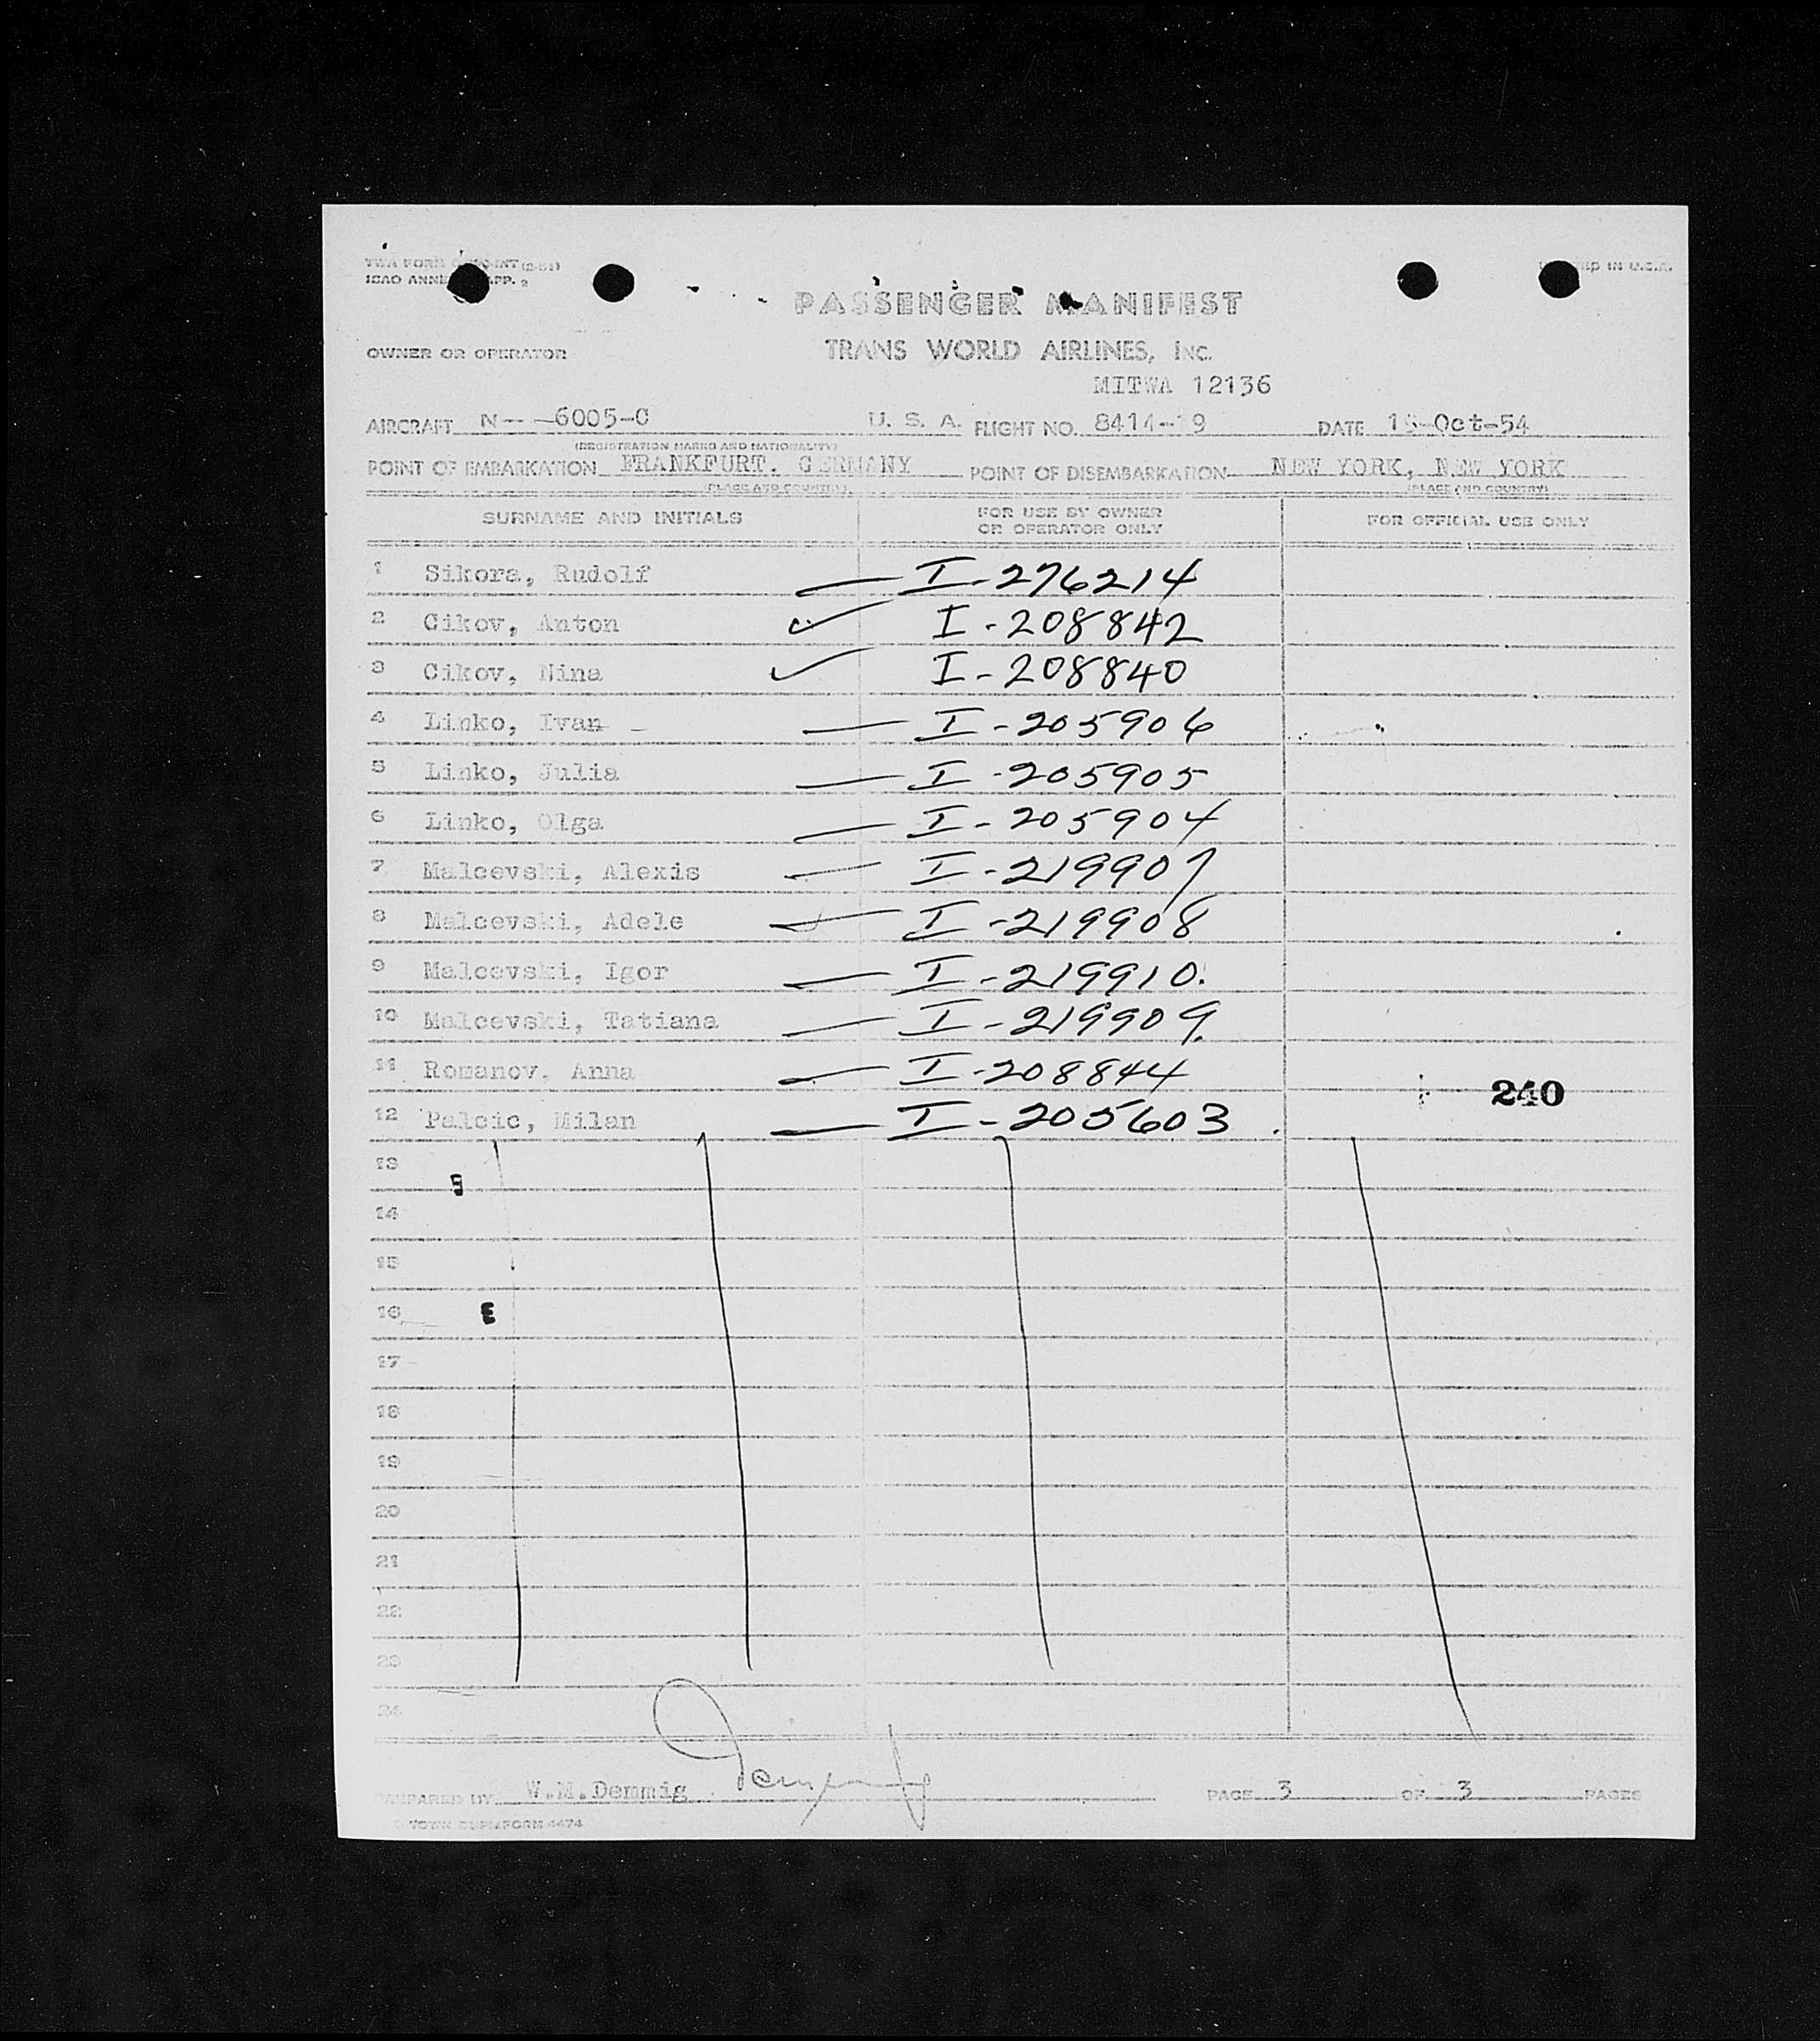 TWA FORM (2-51) PRINTED IN U.S.A.
ICAO ANNEX APP. 2
PASSENGER MANIFEST
OWNER OR OPERATOR TRANS WORLD AIRLINES, INC.
MITWA 12136
AIRCRAFT N-- -6005-C U. S. A. FLIGHT NO. 8414-19 DATE Oct-54
(REGISTRATION MARKS AND NATIONALITY)
POINT OF EMBARKATION FRANKFURT, GERMANY POINT OF DISEMBARKATION NEW YORK, NEW YORK
(PLACE AND COUNTRY) (PLACE AND COUNTRY)
SURNAME AND INITIALS FOR USE BY OWNER OR OPERATOR ONLY FOR OFFICIAL USE ONLY
1 Sikora, Rudolf I-276214
2 Cikov, Anton I-208842
3 Cikov, Nina I-208840
4 Linko, Ivan I-205906
5 Linko, Julia I-205905
6 Linko, Olga I-205904
7 Malcevski, Alexis I-219907
8 Malcevski, Adele I-219908
9 Malcevski, Igor I-219910
10 Malcevski, Tatiana I-219909
11 Romanov, Anna I-208844
240
12 Palcic, Milan I-205603
13
14
15
16
17
18
19
20
21
22
23
24
PREPARED BY W.M.Demmig PAGE 3 OF 3 PAGES
TOWN 4474